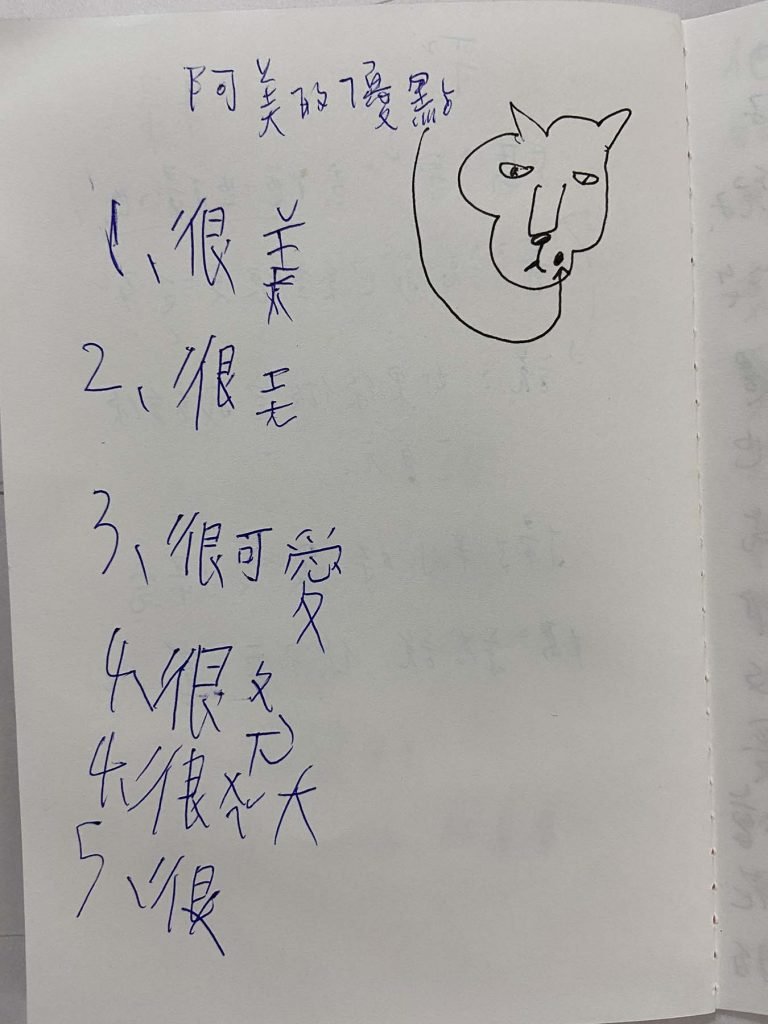 阿美的優點
1、很美
2、很
3、很可愛
4、很
4、很 大
5、很